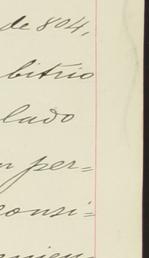 de 804,
bitrio
lado
n per=
consi=
mien=